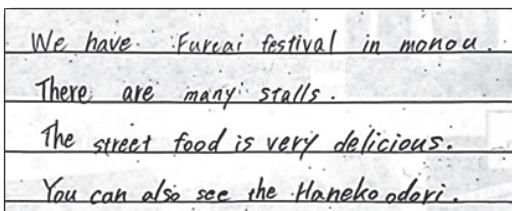 We have Fureai festival in monou.
There are many stalls.
The street food is very delicious.
You can also see the Haneko odori.